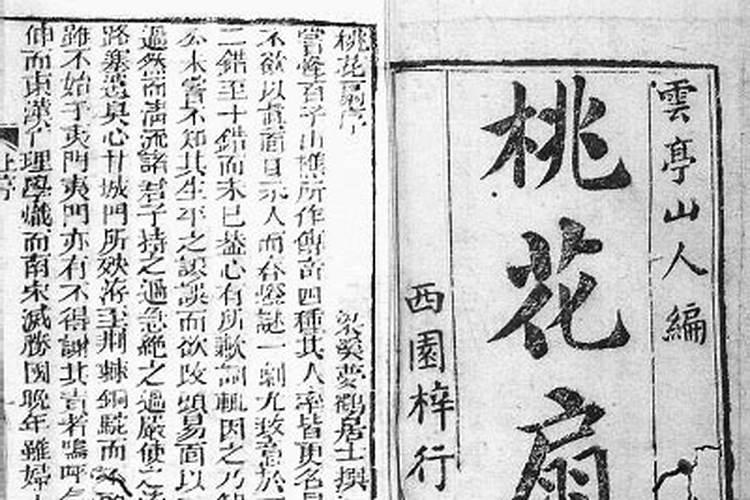 雲亭山人編
桃花扇
西園梓行
桃花扇序
梁溪夢鶴居士撰
嘗怪百子山樵所作傳奇四種其人率皆更名
不欲以真面目示人而春燈謎一劇尤致意於
二錯至十錯而未已蓋心有所歉詞輒因之乃知
公未嘗不知其生平之謬誤而欲改頭易面以
過然而清流諸君子持之過急絕之過嚴使之
路塞遂臭心甘城門所殃洊至荊棘銅駝而
雖不始于夷門夷門亦有不得謝其責者嗚呼
伸而東漢亡理學熾而南宋滅勝國晚年雖婦